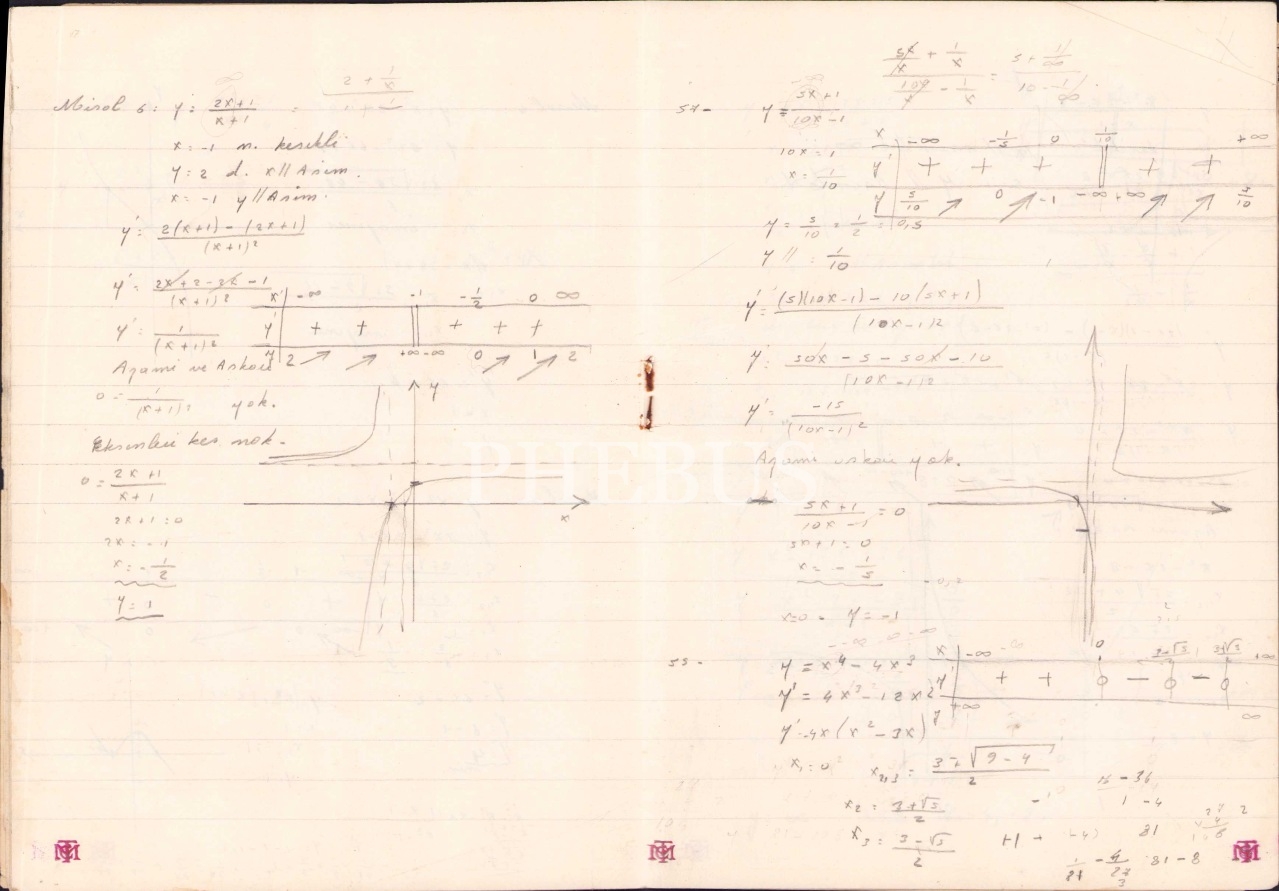 Misal 6: y = 2x+1 / x+1 = 2 + 1/x / 1 + 1/x
x = -1 n. kesikli
y = 2 d. x // Asim.
x = -1 y // Asim.
y' = 2(x+1) - (2x+1) / (x+1)²
y' = 2x + 2 - 2x - 1 / (x+1)²
y' = 1 / (x+1)²
x -∞ -1 -1/2 0 ∞
y' + + + + +
y 2 ↗ ↗ +∞ -∞ 0 ↗ 1 ↗ 2
Azami ve Askari
0 = 1 / (x+1)² yok.
kes nok.
0 = 2x+1 / x+1
2x+1 = 0
2x = -1
x = -1/2
y = 1
y
x
PHEBUS
5x/x + 1/x / 10x/x - 1/x = 5 + 1/∞ / 10 - 1/∞
54- y = 5x+1 / 10x-1
10x = 1
x = 1/10
x -∞ -1/5 0 1/10 +∞
y' + + + + +
y 5/10 ↗ 0 ↗ -1 -∞ +∞ ↗ ↗ 5/10
y = 5/10 = 1/2 = 0,5
y // = 1/10
y' = (5)(10x-1) - 10(5x+1) / (10x-1)²
y' = 50x - 5 - 50x - 10 / (10x-1)²
y' = -15 / (10x-1)²
Azami askari yok.
5x+1 / 10x-1 = 0
5x+1 = 0
x = -1/5 -0,2
x=0 - y = -1
55- y = x⁴ - 4x³
y' = 4x³ - 12x²
y' = 4x(x² - 3x)
x -∞ 0 3-√5/2 3+√5/2 +∞
y' + + 0 - 0 - 0
y +∞ ∞
x₁ = 0 x₂,₃ = 3 ∓ √9-4 / 2
x₂ = 3+√5 / 2
x₃ = 3-√5 / 2
1 -4
81
81 - 8